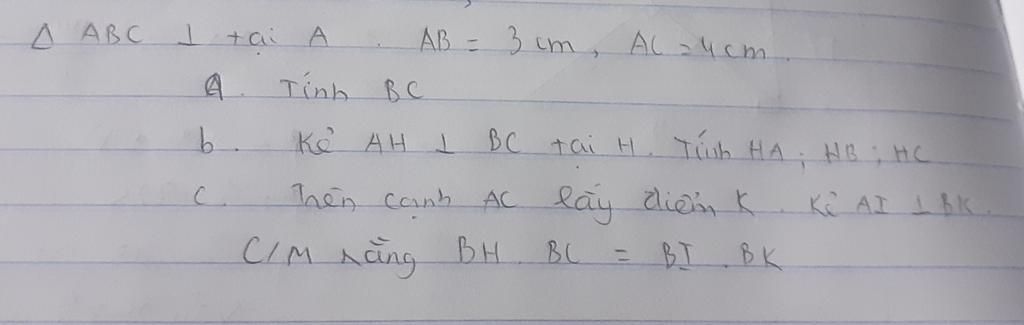 Δ ABC ⊥ tại A. AB = 3 cm, AC = 4 cm.
a. Tính BC
b. Kẻ AH ⊥ BC tại H. Tính HA; HB; HC
c. Trên cạnh AC lấy điểm K. Kẻ AI ⊥ BK.
C/M rằng BH. BC = BI. BK